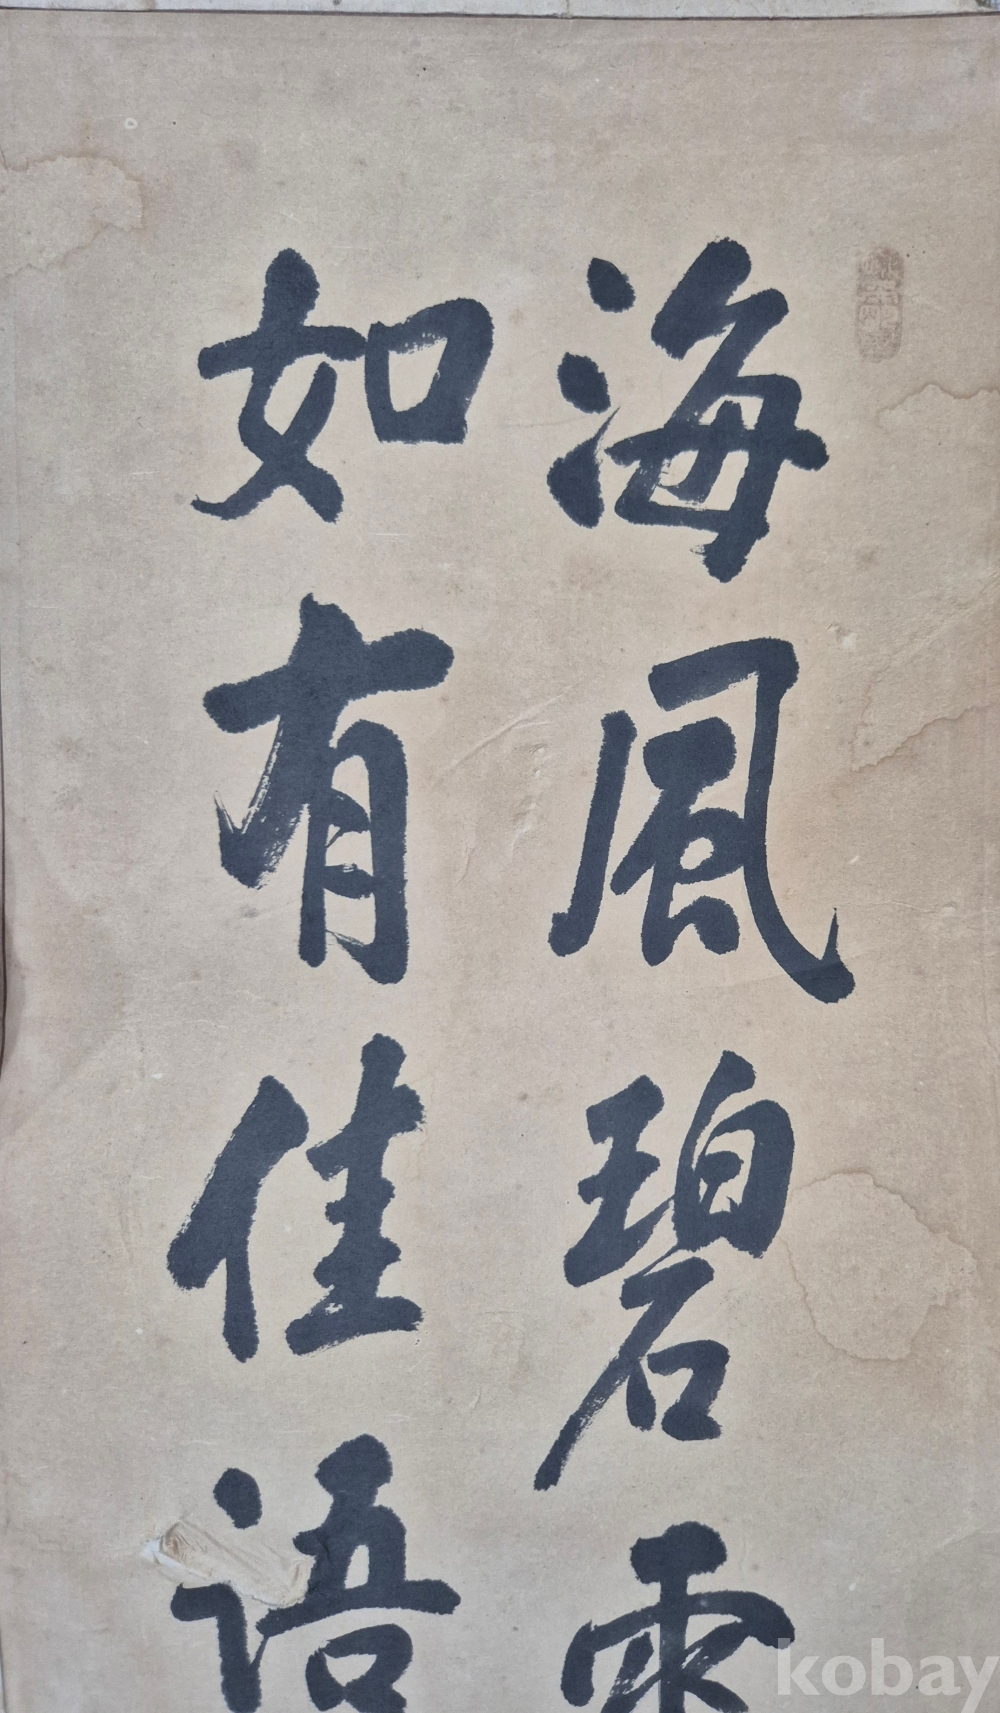 海風碧雲
如有佳語
kobay